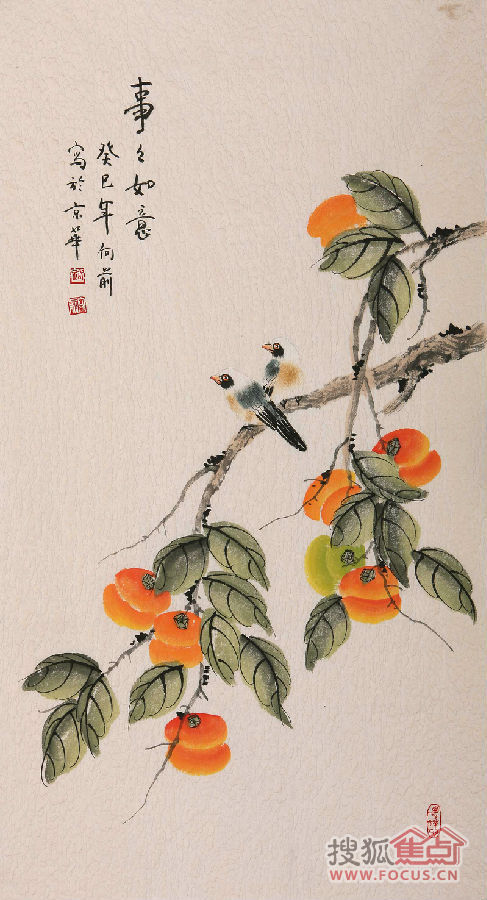 事々如意
癸巳年何前
寫於京華
搜狐焦点
WWW.FOCUS.CN